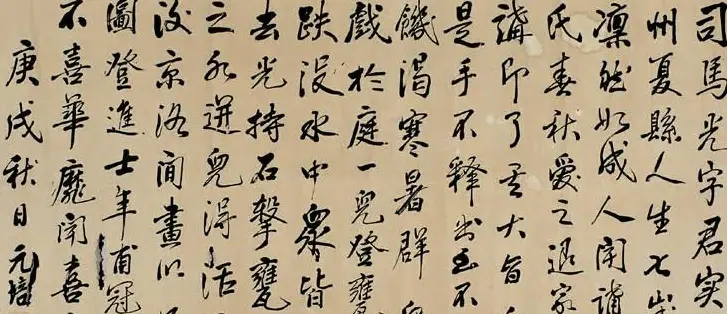 司馬光字君实
州夏縣人生七岁
凛然如成人闻讲
氏春秋愛之退家
講即了其大旨
是手不釋書至不
饑渴寒暑群
戲於庭一兒登甕
跌没水中眾皆
去光持石擊甕
之水迸兒得活
没京洛間畫以
圖登進士年甫冠
不喜華靡聞喜
庚戌秋日元培